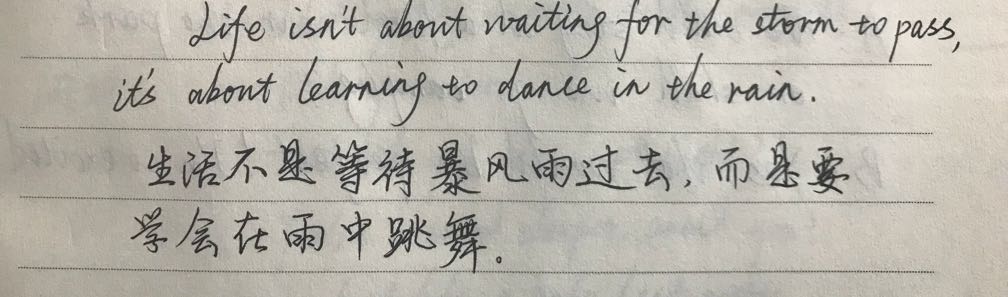 Life isn't about waiting for the storm to pass,
it's about learning to dance in the rain.
生活不是等待暴风雨过去,而是要
学会在雨中跳舞。